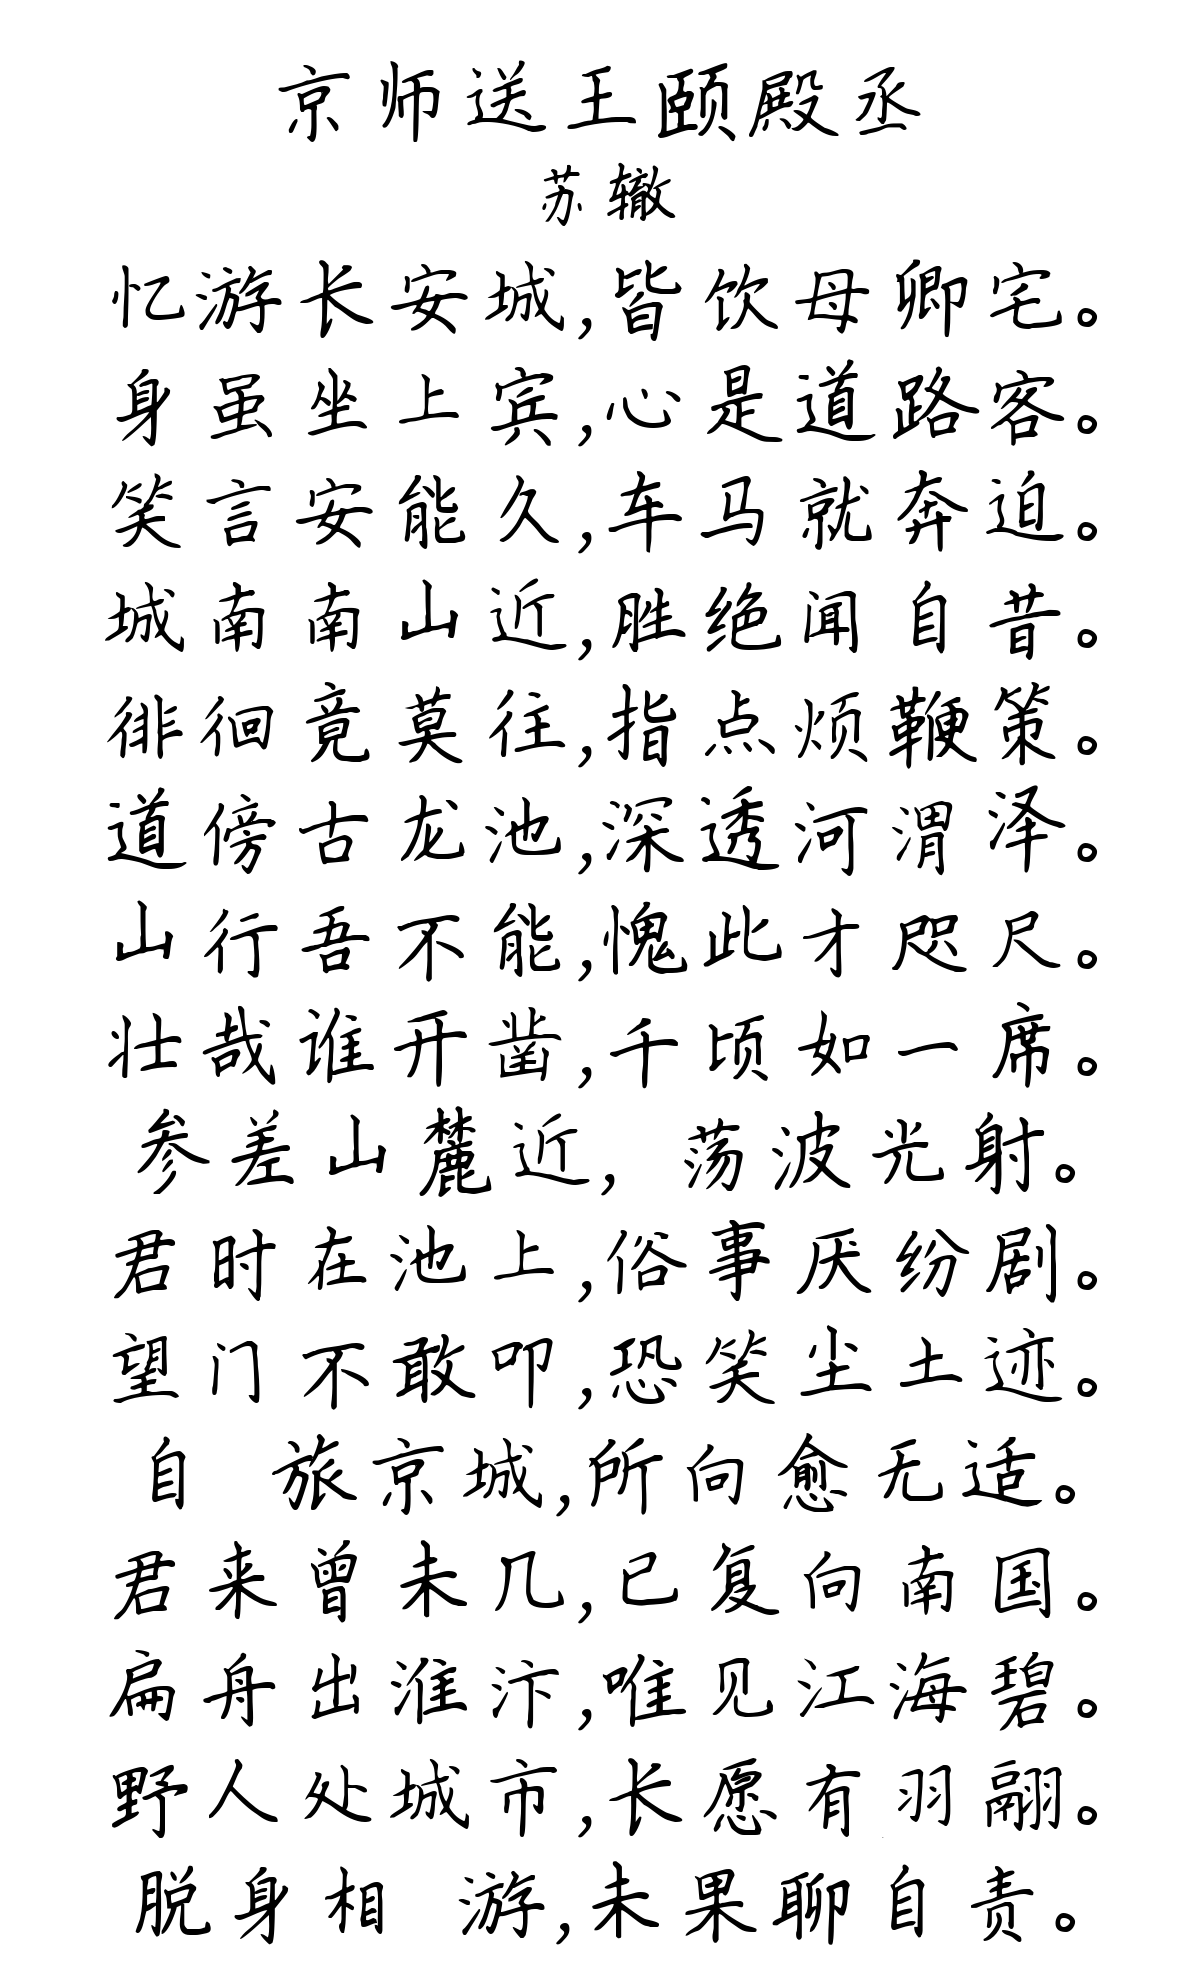 京师送王颐殿丞
苏辙
忆游长安城,皆饮母卿宅。
身虽坐上宾,心是道路客。
笑言安能久,车马就奔迫。
城南南山近,胜绝闻自昔。
徘徊竟莫往,指点烦鞭策。
道傍古龙池,深透河渭泽。
山行吾不能,愧此才咫尺。
壮哉谁开凿,千顷如一席。
参差山麓近, 荡波光射。
君时在池上,俗事厌纷剧。
望门不敢叩,恐笑尘土迹。
自 旅京城,所向愈无适。
君来曾未几,已复向南国。
扁舟出淮汴,唯见江海碧。
野人处城市,长愿有羽翮。
脱身相 游,未果聊自责。